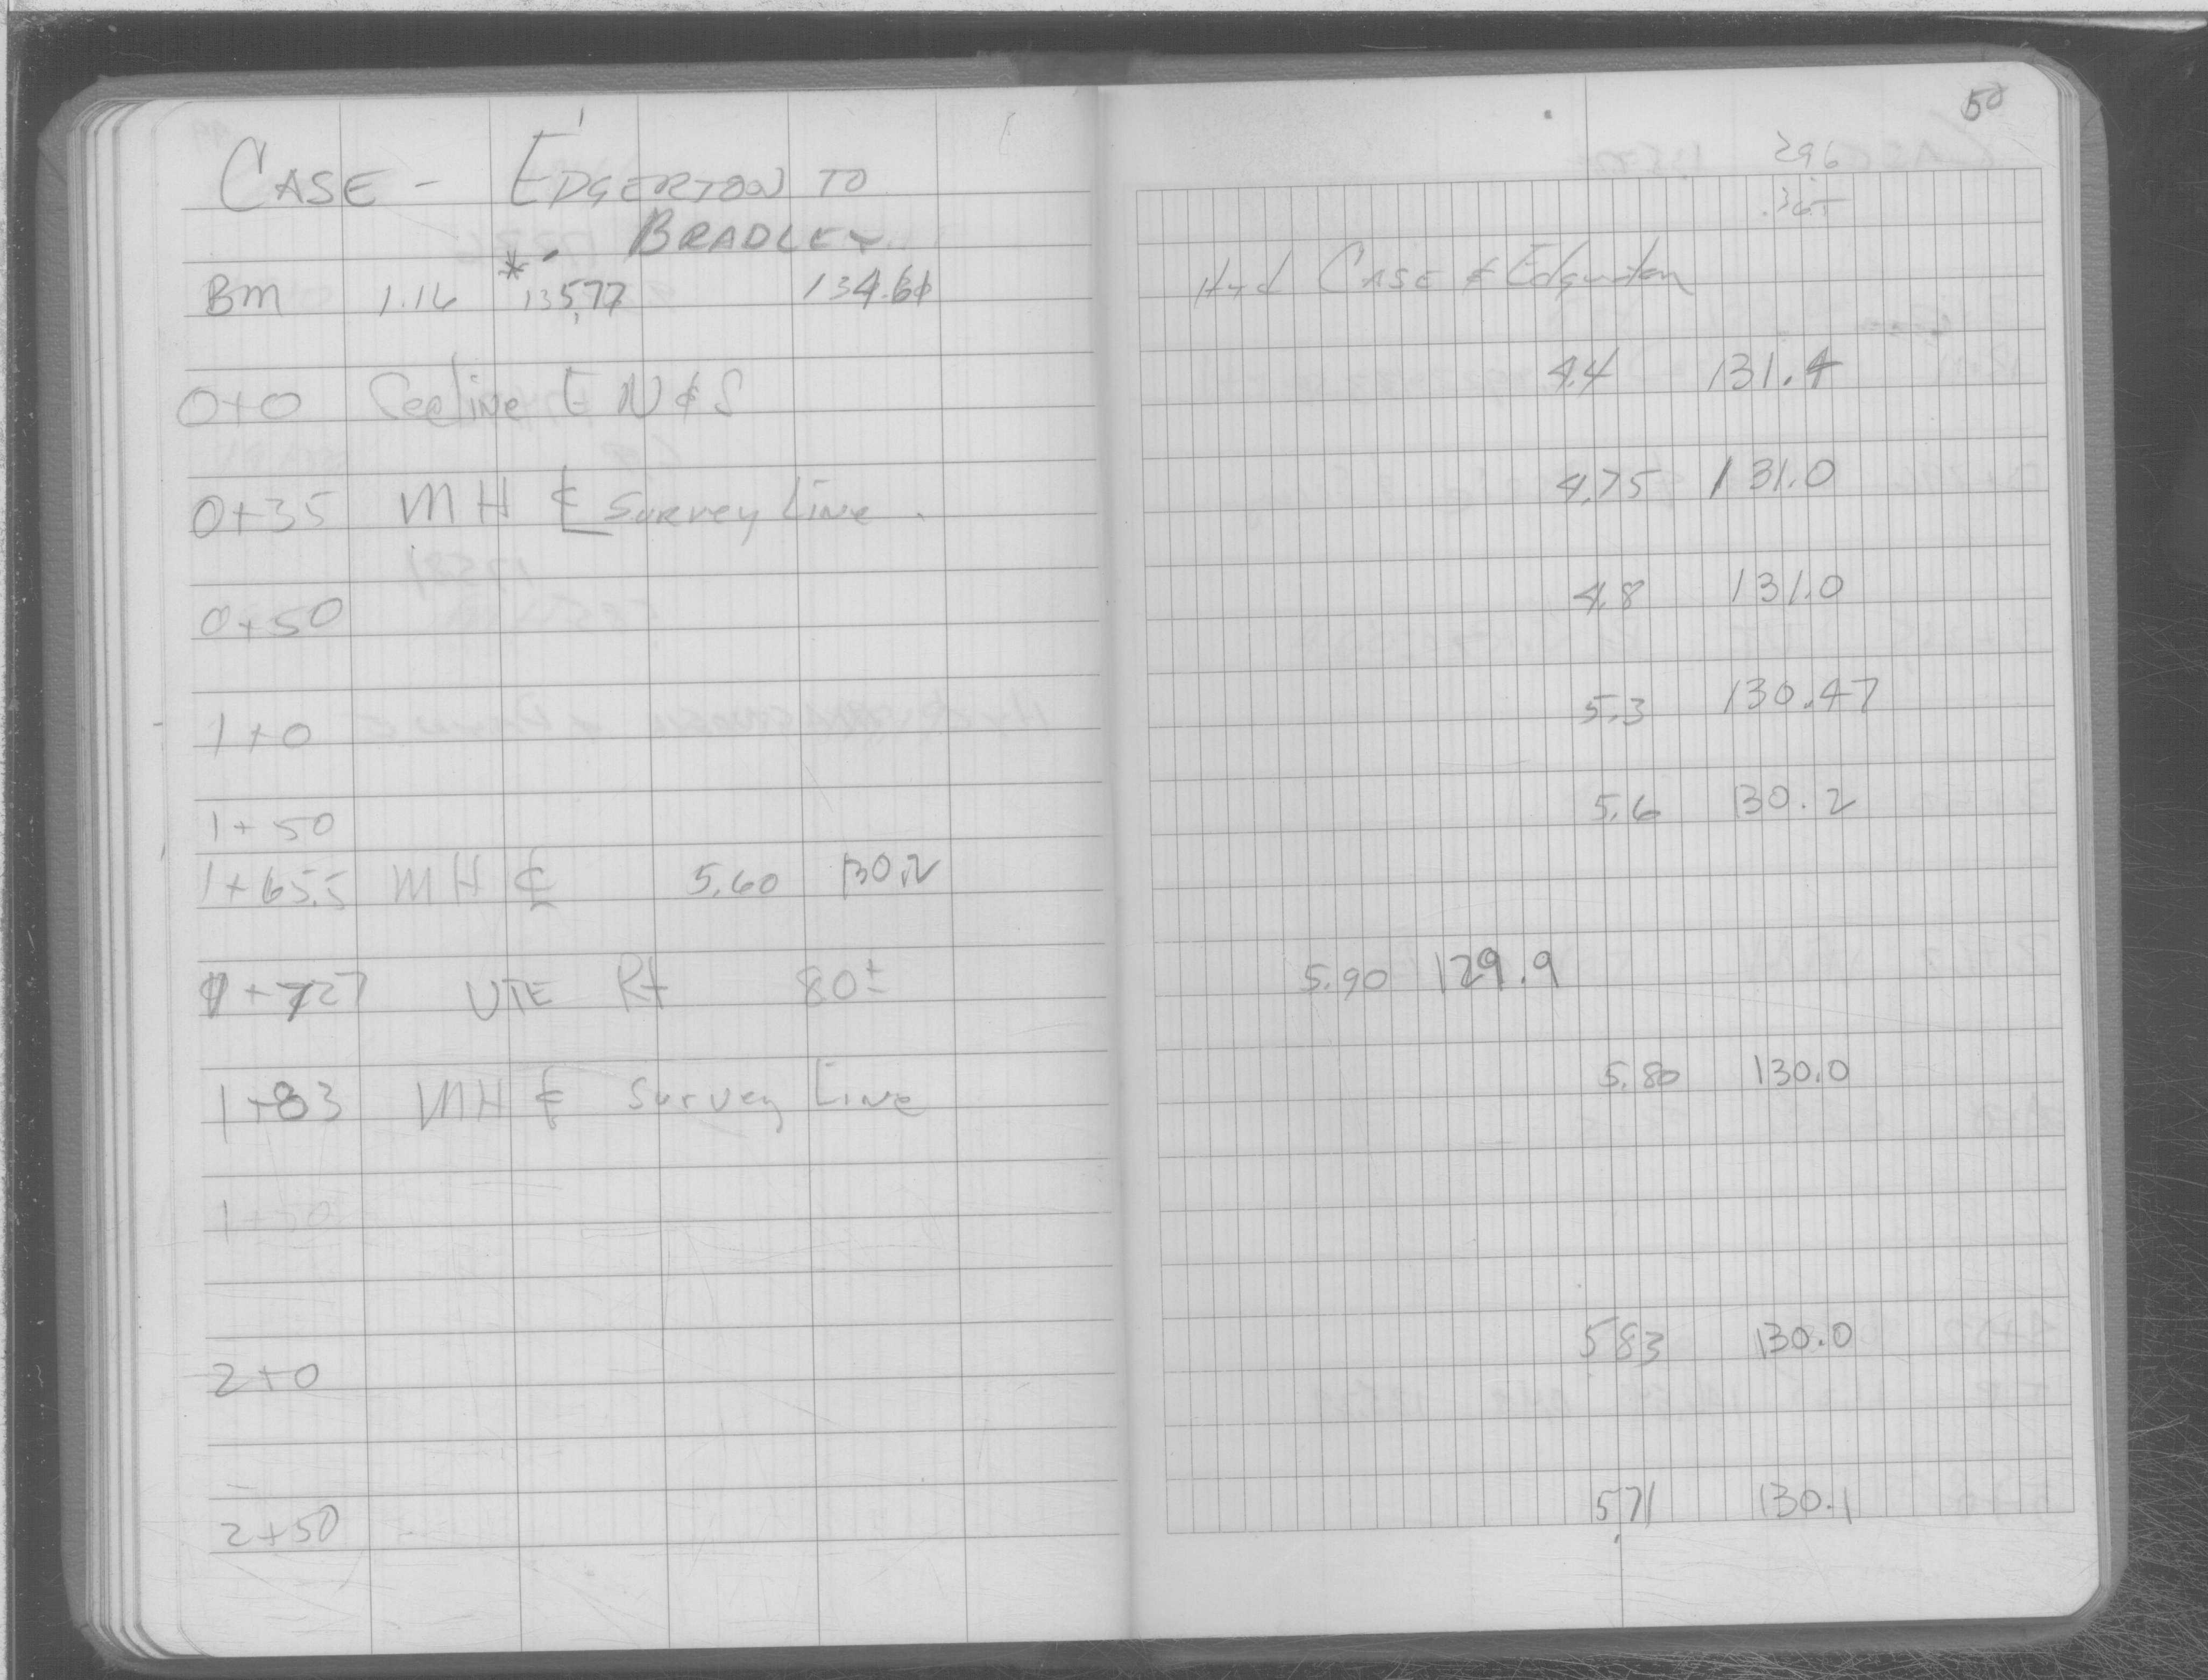 50
CASE - EDGERTON TO
BRADLEY
296
.365
Bm 1.16 * 135.77 134.61 Hyd CASE & Edgerton
0+0 E N & S 4.4 131.4
0+35 MH ⅊ Survey Line 4.75 131.0
0+50 4.8 131.0
1+0 5.3 130.47
1+50 5.6 130.2
1+65.5 MH ⅊ 5.60 130.2
UTE Rt 80± 5.90 129.9
1+83 MH ⅊ Survey Line 5.80 130.0
1+50
2+0 5.83 130.0
2+50 5.71 130.1